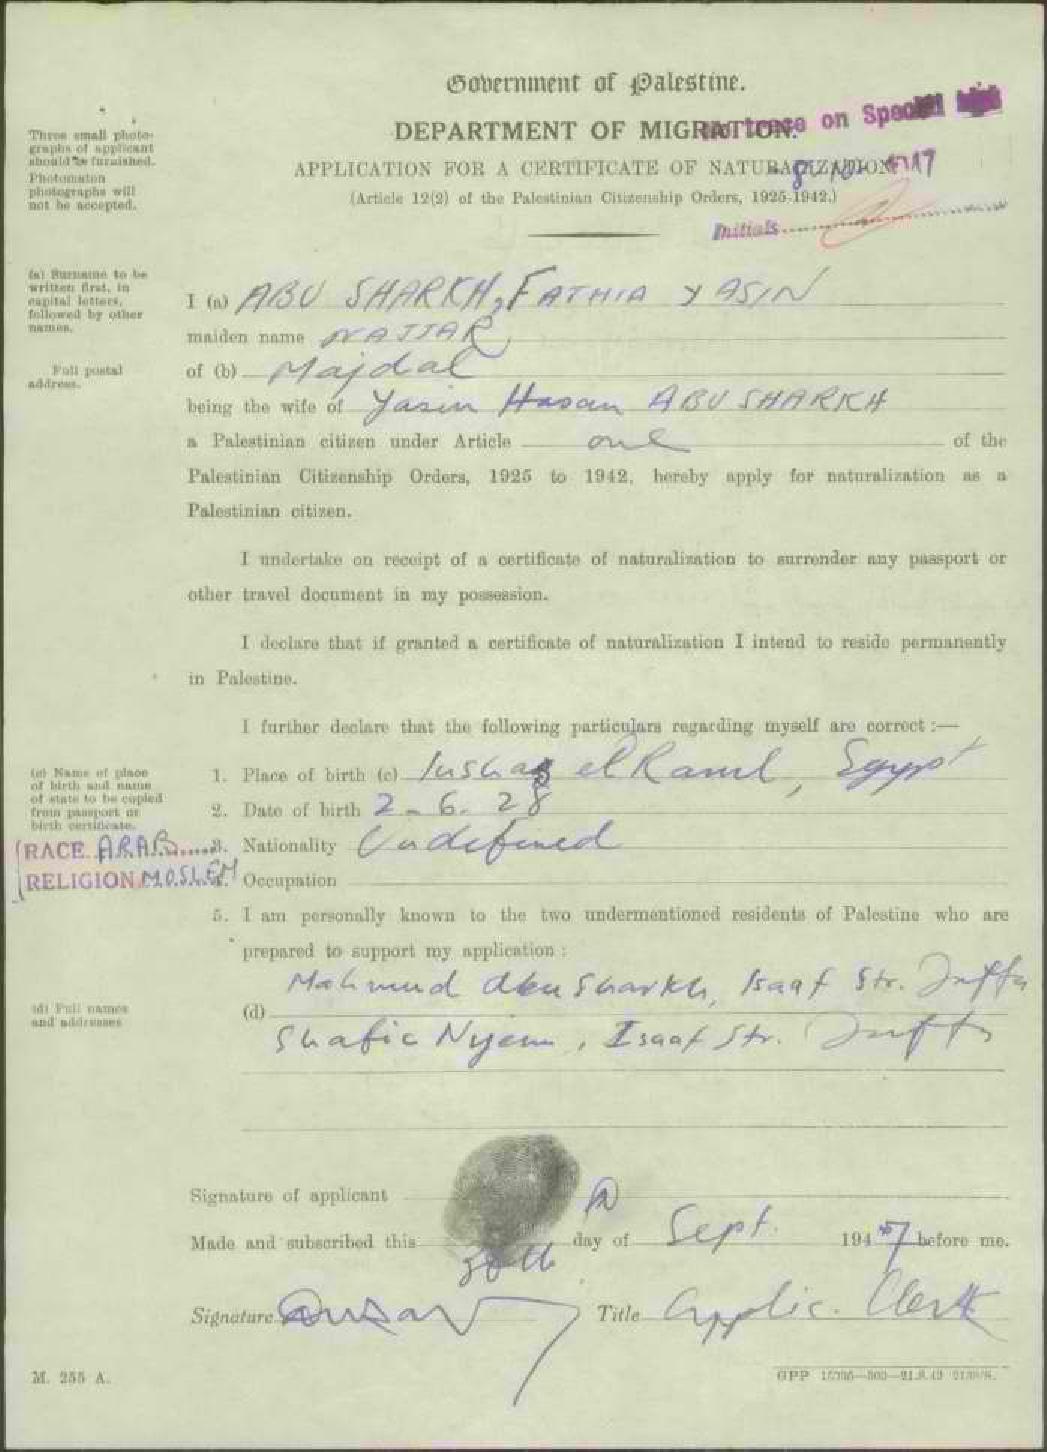 Government of Palestine.
DEPARTMENT OF MIGRATION.
No trace on Special
APPLICATION FOR A CERTIFICATE OF NATURALIZATION
(Article 12(2) of the Palestinian Citizenship Orders, 1925-1942.)
Initials
Three small photo-
graphs of applicant
should be furnished.
Photomaton
photographs will
not be accepted.
(a) Surname to be
written first, in
capital letters,
followed by other
names.
I (a) ABU SHARKH, FATHIA YASIN
maiden name NAJJAR
Full postal
address.
of (b) Majdal
being the wife of Yasin Hasan ABU SHARKH
a Palestinian citizen under Article one of the
Palestinian Citizenship Orders, 1925 to 1942, hereby apply for naturalization as a
Palestinian citizen.
I undertake on receipt of a certificate of naturalization to surrender any passport or
other travel document in my possession.
I declare that if granted a certificate of naturalization I intend to reside permanently
in Palestine.
I further declare that the following particulars regarding myself are correct :—
(c) Name of place
of birth and name
of state to be copied
from passport or
birth certificate.
1. Place of birth (c) el Raml, Egypt
2. Date of birth 2-6.28
RACE ARAB
3. Nationality Undefined
RELIGION MOSLEM
4. Occupation
5. I am personally known to the two undermentioned residents of Palestine who are
prepared to support my application :
Mahmud Abu Sharkh, Isaaf Str. Jaffa
(d) Full names
and addresses
(d)
Shafic Nijem, Isaaf Str. Jaffa
Signature of applicant
Made and subscribed this 30th day of Sept. 1947 before me.
Signature Title Applic. Clerk
M. 255 A.
GPP